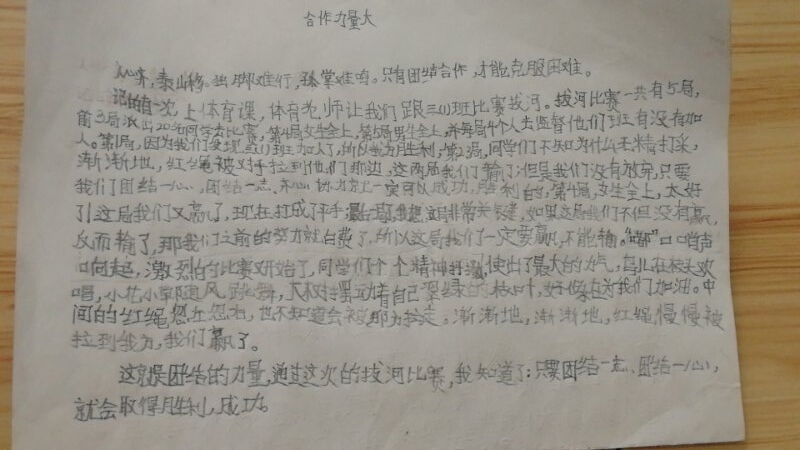 合作力量大
人心齐,泰山移。独脚难行,孤掌难鸣。只有团结合作,才能克服困难。
记的有一次上体育课,体育老师让我们跟三(1)班比赛拔河。拔河比赛一共有5局,
前3局派出20名同学去比赛,第4局女生全上,第5局男生全上,并每局4个人去监督他们班有没有加
人。第1局,因为我们发现三(1)班加人了,所以我方胜利,第2,3局,同学们不知为什么无精打采,
渐渐地,红绳被对手拉到他们那边,这两局我们输了,但是我们没有放弃,只要
我们团结一心,团结一志、齐心协力一定可以成功,胜利的,第4局,女生全上,太好
了!这局我们又赢了,现在打成了平手,最后一局我想这局非常关键,如果这局我们不但没有赢,
反而输了,那我们之前的努力就白费了,所以这局我们一定要赢,不能输。“嘟”口哨声
响起,激烈的比赛开始了,同学们个个精神抖擞,使出了最大的力气,鸟儿在枝头欢
唱,小花小草随风跳舞,大树摆动着自己翠绿的枝叶,好像在为我们加油。中
间的红绳忽左忽右,也不知道会被那方拉走。渐渐地,渐渐地,红绳慢慢被
拉到我方,我们赢了。
这就是团结的力量,通过这次的拔河比赛,我知道了:只要团结一志、团结一心,
就会取得胜利,成功。